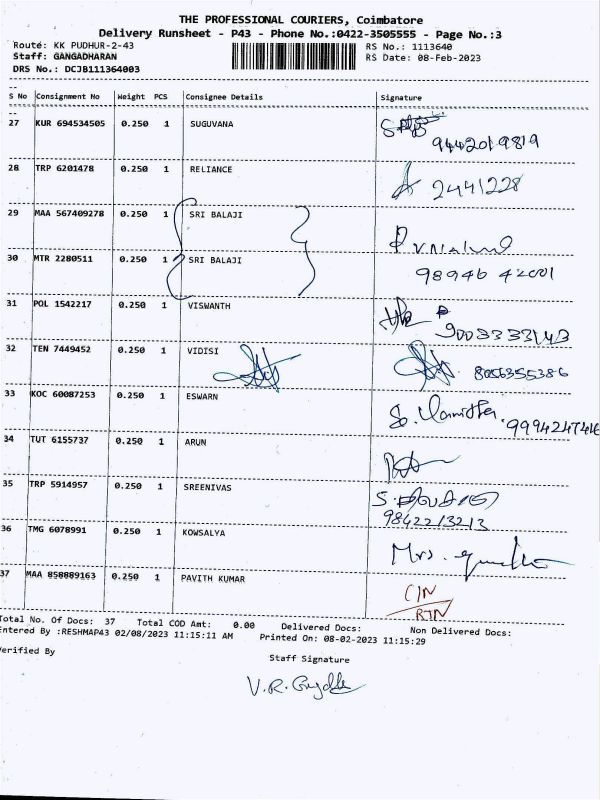 THE PROFESSIONAL COURIERS, Coimbatore
Delivery Runsheet - P43 - Phone No.:0422-3505555 - Page No.:3
Route: KK PUDHUR-2-43 RS No.: 1113640
Staff: GANGADHARAN RS Date: 08-Feb-2023
DRS No.: DCJB111364003
S No Consignment No Weight PCS Consignee Details Signature
27 KUR 694534505 0.250 1 SUGUVANA
9442019819
28 TRP 6201478 0.250 1 RELIANCE
2441228
29 MAA 567409278 0.250 1 SRI BALAJI
30 MTR 2280511 0.250 1 SRI BALAJI
98946 42001
31 POL 1542217 0.250 1 VISWANTH
9003333143
32 TEN 7449452 0.250 1 VIDISI
8056355386
33 KOC 60087253 0.250 1 ESWARN
9994247446
34 TUT 6155737 0.250 1 ARUN
35 TRP 5914957 0.250 1 SREENIVAS
9842213213
36 TMG 6078991 0.250 1 KOWSALYA
Mrs.
37 MAA 858889163 0.250 1 PAVITH KUMAR
C/N
RTN
Total No. Of Docs: 37 Total COD Amt: 0.00 Delivered Docs: Non Delivered Docs:
Entered By :RESHMAP43 02/08/2023 11:15:11 AM Printed On: 08-02-2023 11:15:29
Verified By
Staff Signature
V.R.